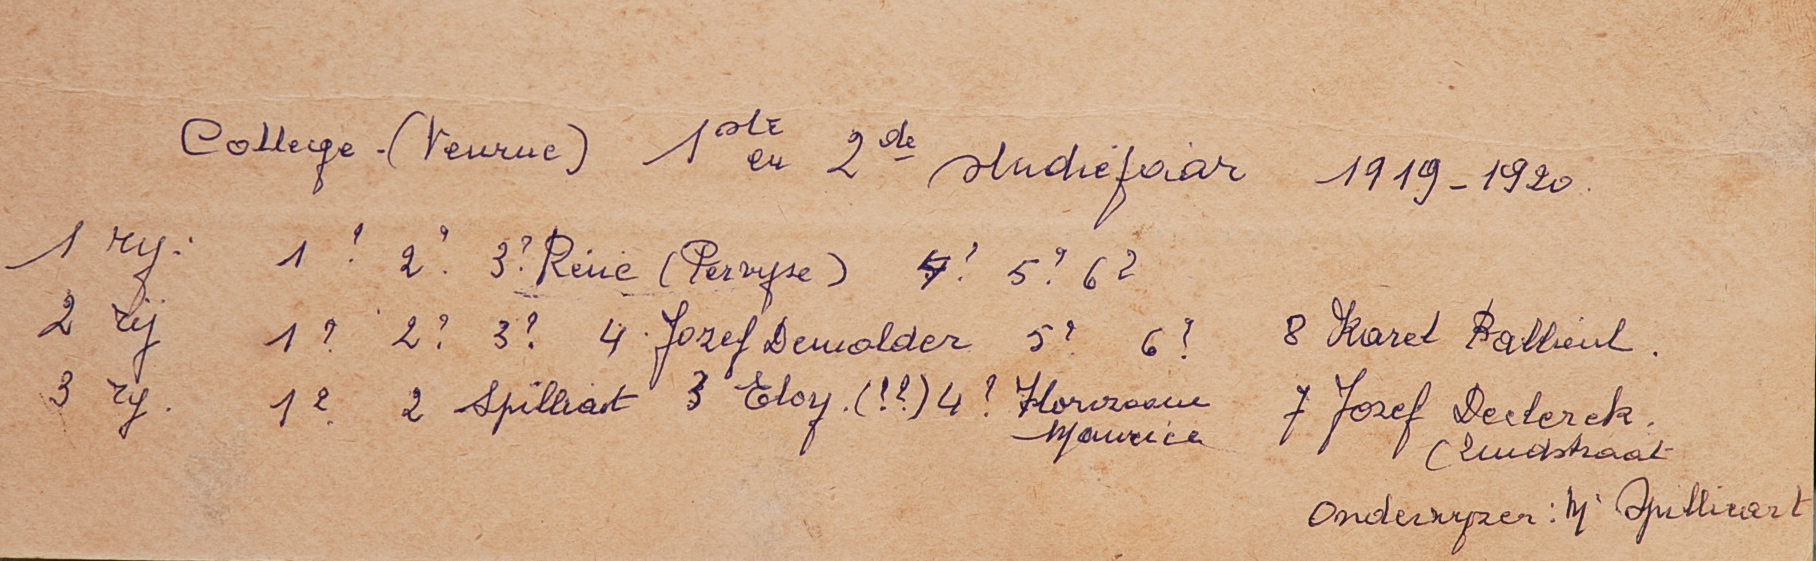 College - (Veurne) 1ste en 2de studiejaar 1919-1920.
1 ry: 1? 2? 3? Réné (Pervyse) 4? 5? 6?
2 rij 1? 2? 3? 4. Jozef Demolder 5? 6? 8 Karel Ballieul.
3 ry. 1? 2 Spilliart 3 Eloy. (!?) 4?
Maurice
7 Jozef Declerck.
(Zuidstraat
Onderwyzer: Mr Spillieart